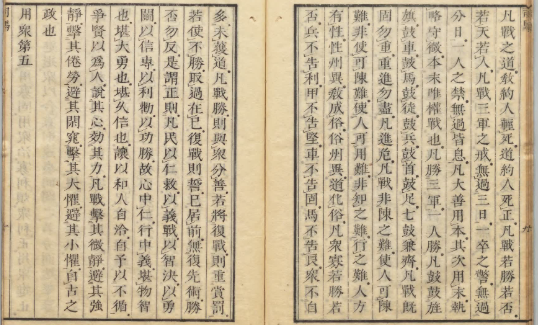 凡戰之道教約人輕死道約人死正凡戰若勝若否
若天若人凡戰三軍之戒無過三日一卒之警無過
分日一人之禁無過皆息凡大善用本其次用末執
略守微本末唯權戰也凡勝三軍一人勝凡鼓鼓旌
旗鼓車鼓馬鼓徒鼓兵鼓首鼓足七鼓兼齊凡戰既
固勿重重進勿盡凡進危凡戰非陳之難使人可陳
難非使可陳難使人可用難非知之難行之難人方
有性性州異教成俗俗州異道化俗凡衆寡若勝若
否兵不告利甲不告堅車不告固馬不告良衆不自
多未獲道凡戰勝則與衆分善若將復戰則重賞罰
若使不勝取過在己復戰則誓己居前無復先術勝
否勿反是謂正則凡民以仁救以義戰以智決以勇
鬭以信專以利勸以功勝故心中仁行中義堪物智
也堪大勇也堪久信也讓以和人自給自予以不循
爭賢以爲人說其心効其力凡戰擊其微靜避其強
靜擊其倦勞避其閑窕擊其大懼避其小懼自古之
政也
用衆第五